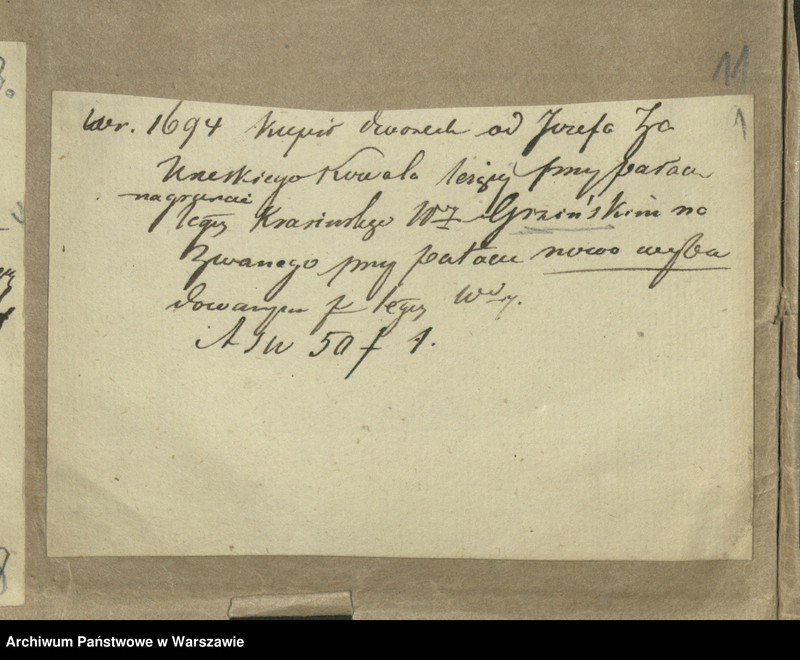 11
1
1694 Kupił dworek od Józefa Za
Kowala leżący przy pałacu
na gruncie
tegoż Krasińskiego Wdy Grzińskim na
zwanego przy pałacu nowo wybu
dowanym p tegoż Wdę.
50 f 1.
Archiwum Państwowe w Warszawie